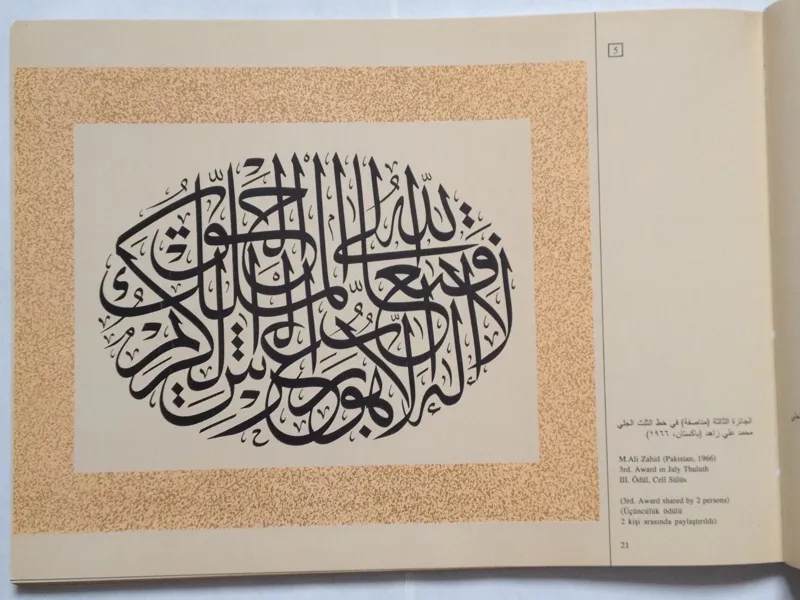 فتعالى الله الملك الحق لا إله إلا هو رب العرش الكريم
5
الجائزة الثالثة (مناصفة) في خط الثلث الجلي
محمد علي زاهد (باكستان، ١٩٦٦).
M.Ali Zahid (Pakistan, 1966)
3rd. Award in Jaly Thuluth
III. Ödül, Celî Sülüs
(3rd. Award shared by 2 persons)
(Üçüncülük ödülü
2 kişi arasında paylaştırıldı).
21